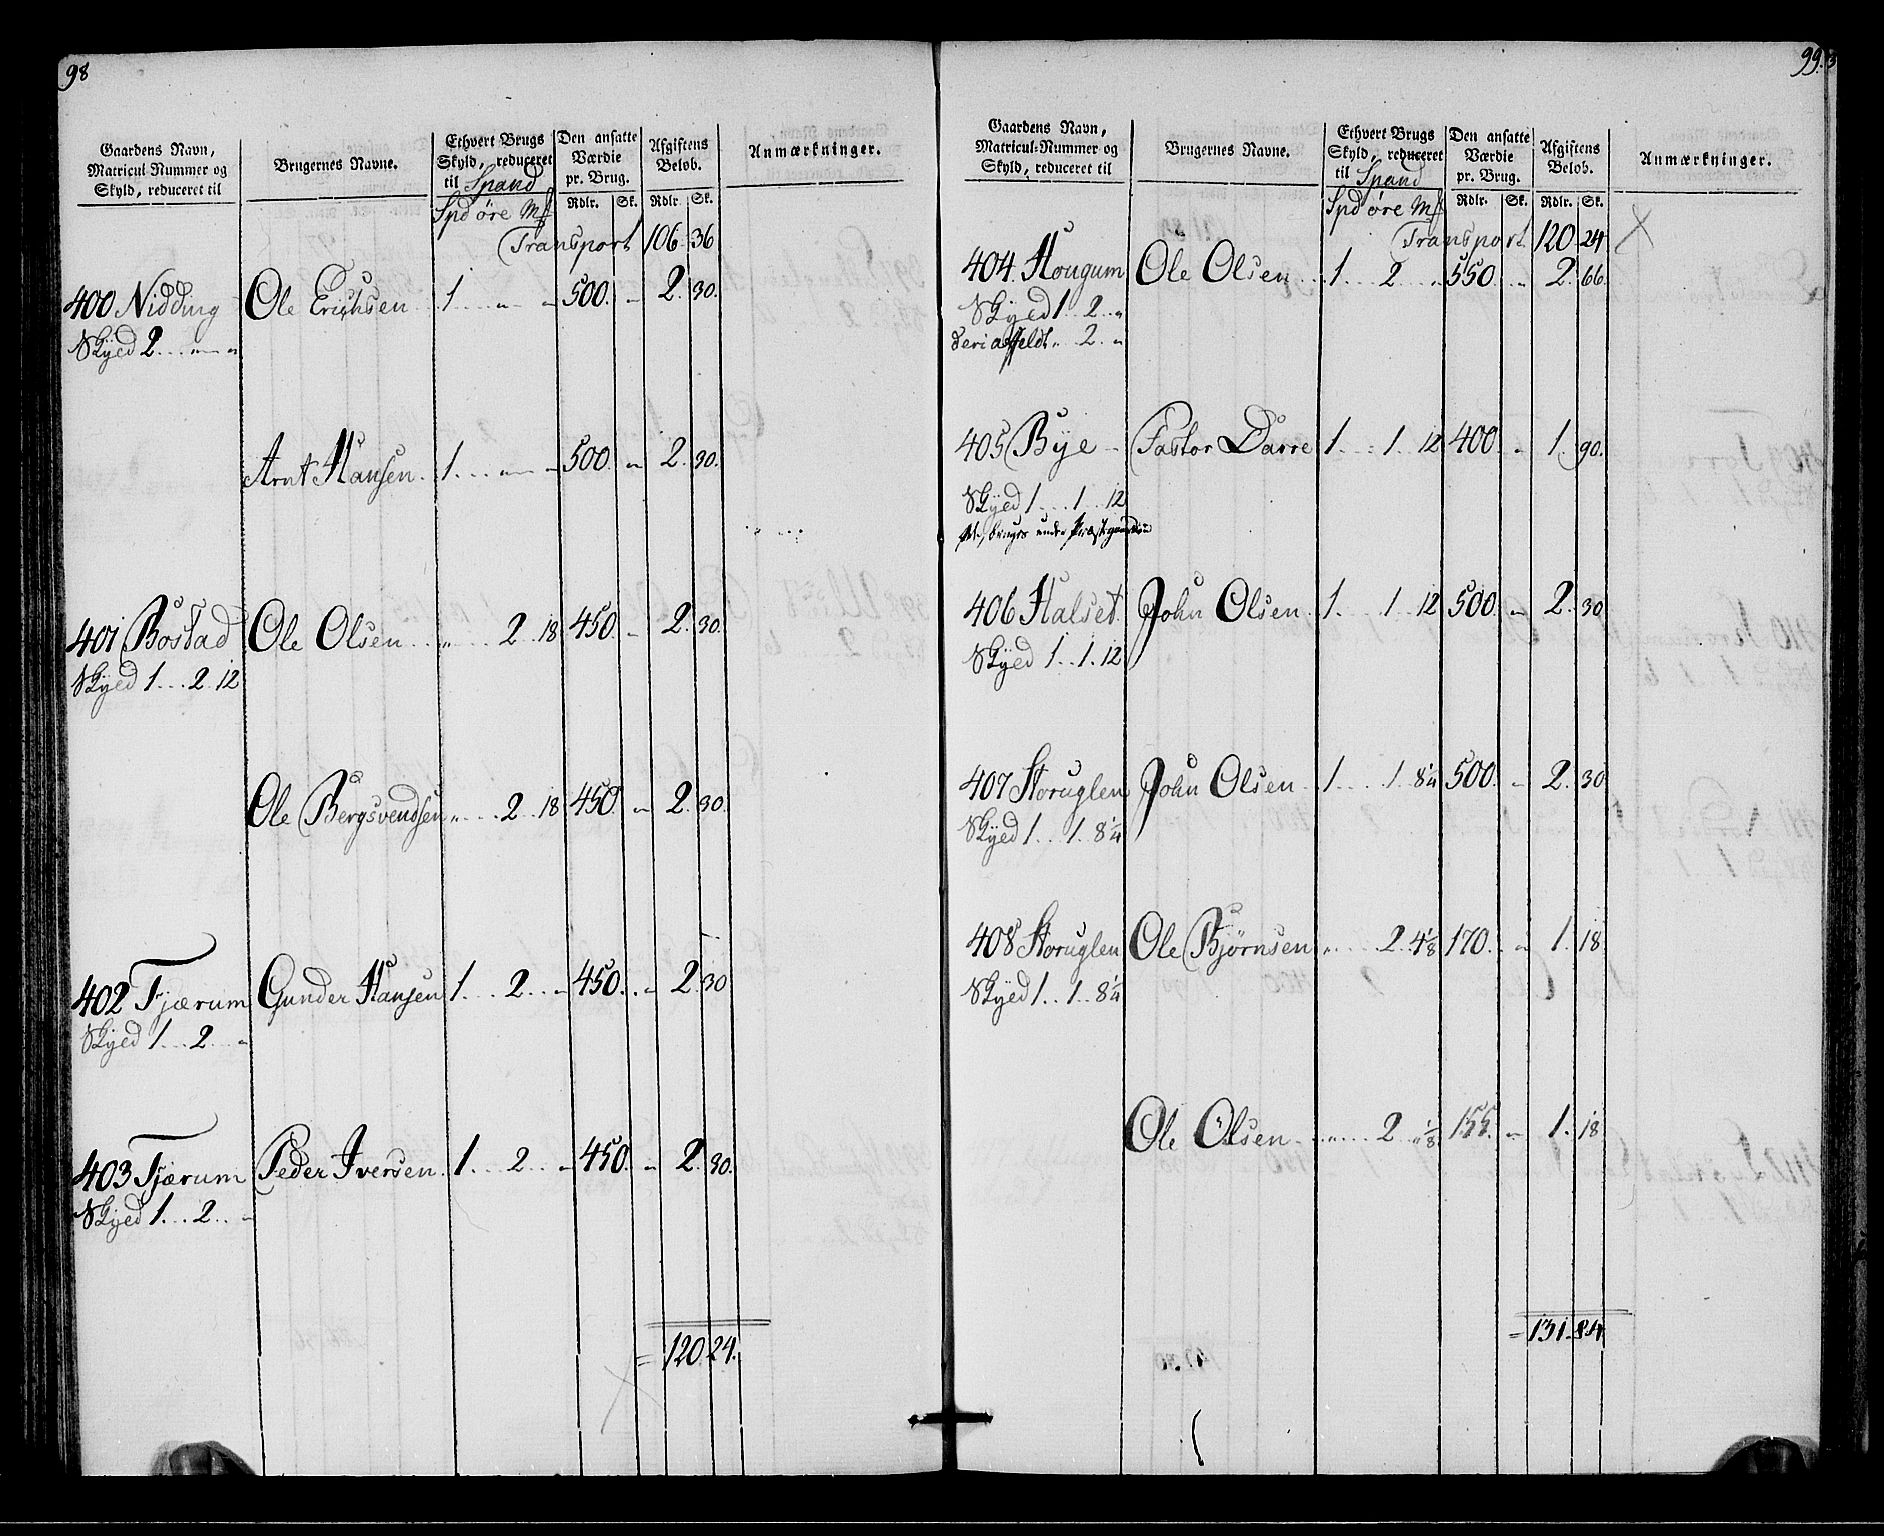 98
Gaardens Navn, Matricul Nummer og Skyld, reduceret til | Brugernes Navne. | Ethvert Brugs Skyld, reduceret til Spand | Den ansatte Værdie pr. Brug. | Afgiftens Beløb. | Anmærkninger.
Spd øre Mk | Rdlr. | Sk. | Rdlr. | Sk.
Transport 106. 36
400 Nidding Ole Erichsen 1 .. " " 500. " 2. 30.
Skyed 2 ... " "
Arnt Hansen. 1 ... " " 500. " 2. 30.
401 Bostad Ole Olsen " .... 2 18 450. " 2. 30.
Skyed 1 ... 2. 12
Ole Bergsvendsen " .... 2 .. 18 450 " 2. 30.
402 Fjærum Gunder Hansen 1 ... 2 .. " 450. " 2. 30
Skyed 1 ... 2 .. "
403 Fjærum Peder Iversen. 1 ... 2 .. " 450. " 2. 30.
Skyed 1 ... 2 .. "
= 120. 24.
99.
Gaardens Navn, Matricul-Nummer og Skyld, reduceret til | Brugernes Navne. | Ethvert Brugs Skyld, reduceret til Spand | Den ansatte Værdie pr. Brug. | Afgiftens Beløb. | Anmærkninger.
Spd øre Mk | Rdlr. | Sk. | Rdlr. | Sk.
Transport 120. 24
404. Hougum Ole Olsen 1. .. 2 ... " 550. " 2. 66.
Skyed 1 .. 2 .. "
" .. 2 .. "
405 Bye Pastor Darre 1 .... 1 .. 12 400 " 1. 90.
Skyed 1 ... 1 .. 12
bruges under Præstegaarden
406 Halset. John Olsen 1 .... 1 .. 12 500. " 2. 30
Skyed 1 .. 1. 12
407 Storuglen John Olsen 1 .... 1 8 1/4 500. " 2. 30
Skyed 1 .. 1. 8 1/4
408 Storuglen Ole Bjørnsen " .... 2. 4 1/8 170. " 1. 18
Skyed 1 .. 1 .. 8 1/4
Ole Olsen " .... 2 .. " 1/8 155. " 1. 18
= 131. 84